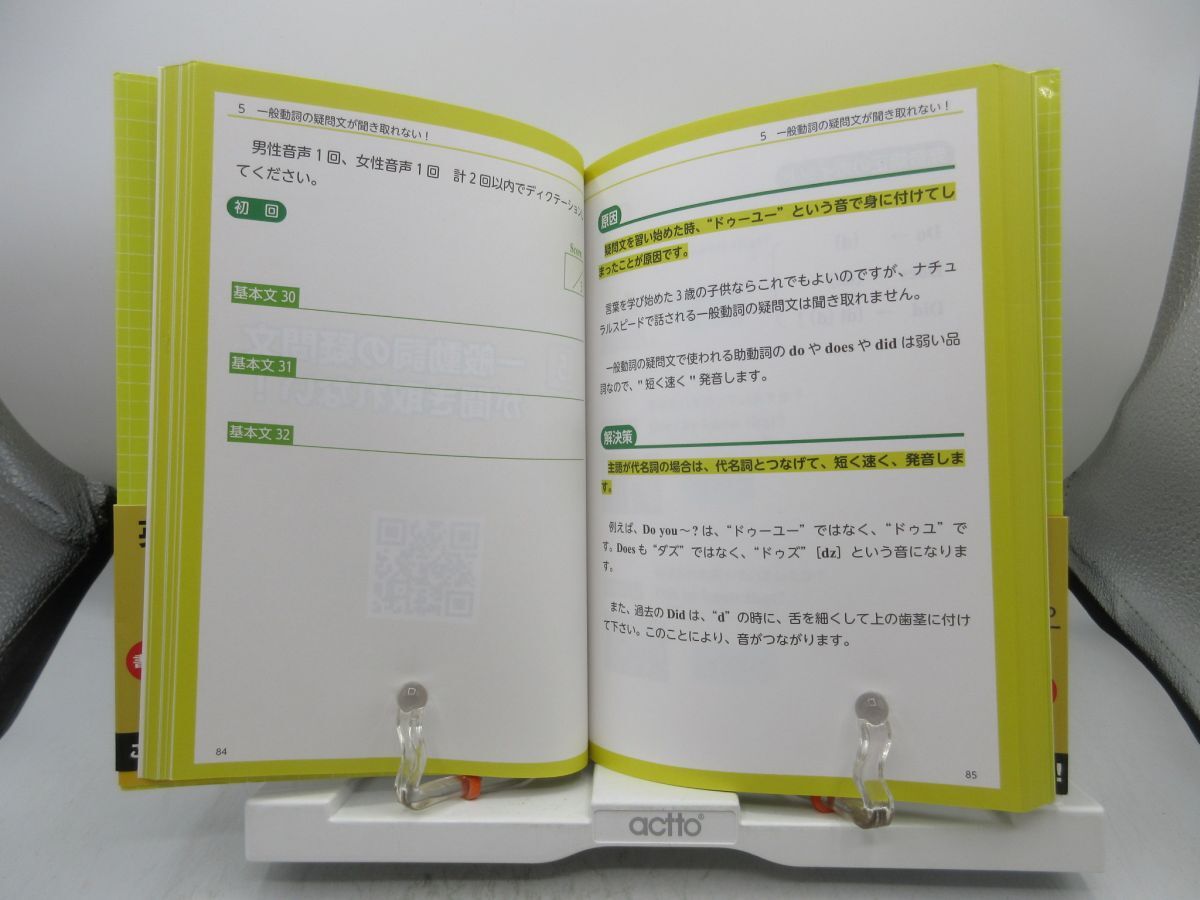 5 一般動詞の疑問文が聞き取れない！
男性音声1回、女性音声1回 計2回以内でディクテーション
てください。
初 回
Score
基本文 30
基本文 31
基本文 32
84
5 一般動詞の疑問文が聞き取れない！
原因
疑問文を習い始めた時、“ドゥーユー”という音で身に付けてし
まったことが原因です。
言葉を学び始めた3歳の子供ならこれでもよいのですが、ナチュ
ラルスピードで話される一般動詞の疑問文は聞き取れません。
一般動詞の疑問文で使われる助動詞の do や does や did は弱い品
詞なので、"短く速く"発音します。
解決策
主語が代名詞の場合は、代名詞とつなげて、短く速く、発音しま
す。
例えば、Do you～? は、“ドゥーユー”ではなく、“ドゥユ”で
す。Doesも“ダズ”ではなく、“ドゥズ”［dz］という音になりま
す。
また、過去の Did は、“d”の時に、舌を細くして上の歯茎に付け
て下さい。このことにより、音がつながります。
85
actto®